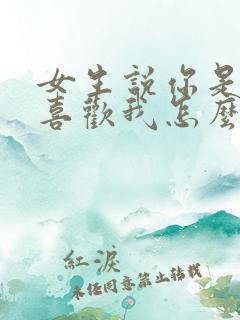 女生說你是
喜歡我怎麼
紅淚
未经同意禁止转载